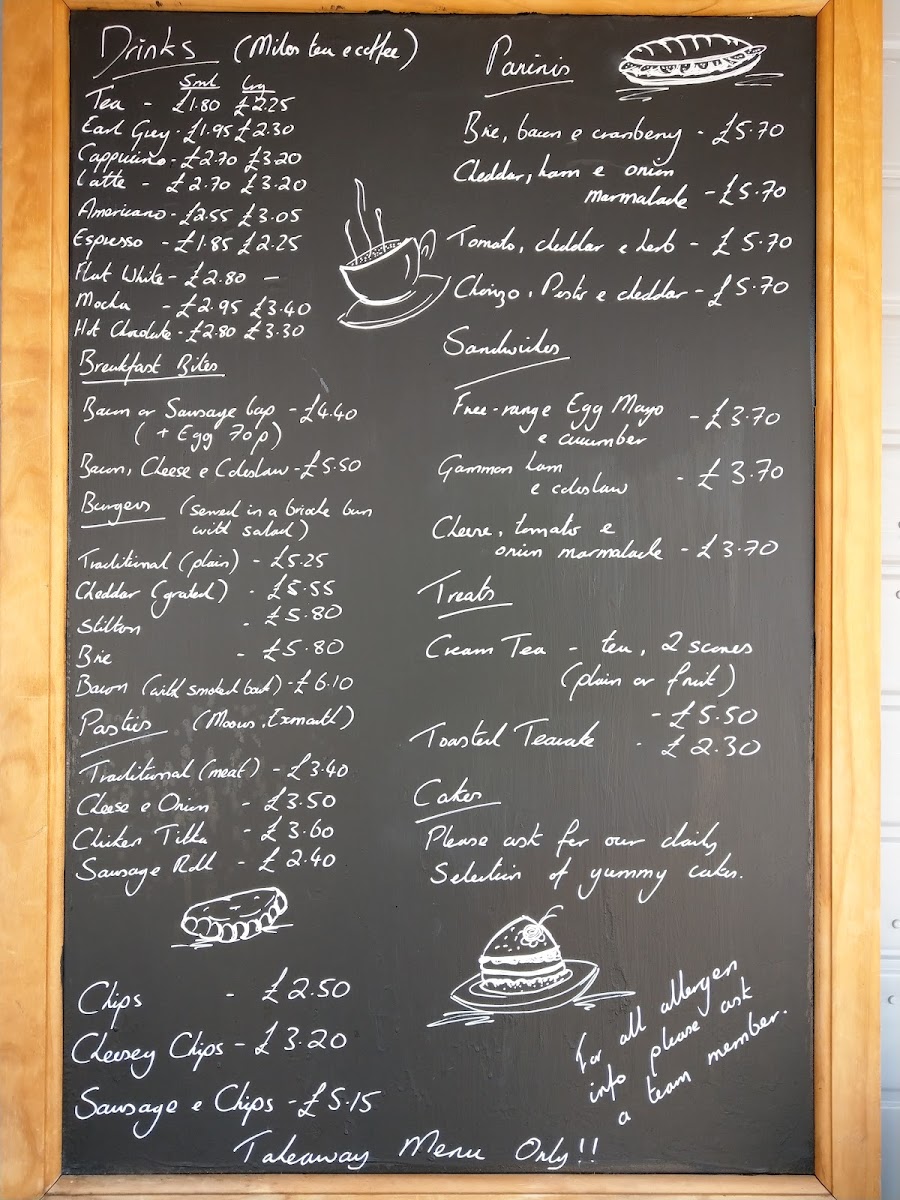 Drinks (Miles tea e coffee)
Sml Lrg
Tea - £1.80 £2.25
Earl Grey - £1.95 £2.30
Cappuccino - £2.70 £3.20
Latte - £2.70 £3.20
Americano - £2.55 £3.05
Espresso - £1.85 £2.25
Flat White - £2.80 -
Mocha - £2.95 £3.40
Hot Chocolate - £2.80 £3.30
Breakfast Bites
Bacon or Sausage bap - £4.40
(+ Egg 70p)
Bacon, Cheese e Coleslaw - £5.50
Burgers (served in a brioche bun
with salad)
Traditional (plain) - £5.25
Cheddar (grated) - £5.55
Stilton - £5.80
Brie - £5.80
Bacon (wild smoked back) - £6.10
Pasties (Moores, Exmouth)
Traditional (meat) - £3.40
Cheese e Onion - £3.50
Chicken Tikka - £3.60
Sausage Roll - £2.40
Chips - £2.50
Cheesey Chips - £3.20
Sausage e Chips - £5.15
Paninis
Brie, bacon e cranberry - £5.70
Cheddar, ham e onion
marmalade - £5.70
Tomato, cheddar e herb - £5.70
Chorizo, Pesto e cheddar - £5.70
Sandwiches
Free-range Egg Mayo
e cucumber - £3.70
Gammon ham
e coleslaw - £3.70
Cheese, tomato e
onion marmalade - £3.70
Treats
Cream Tea - tea, 2 scones
(plain or fruit)
- £5.50
Toasted Teacake - £2.30
Cakes
Please ask for our daily
Selection of yummy cakes.
For all allergen
info please ask
a team member.
Takeaway Menu Only!!